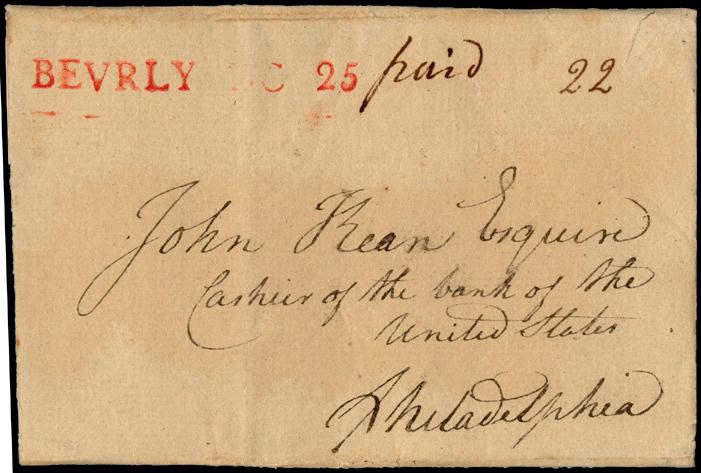 BEVRLY C 25 paid 22
John Kean Esquire
Cashier of the bank of the
United States
Philadelphia